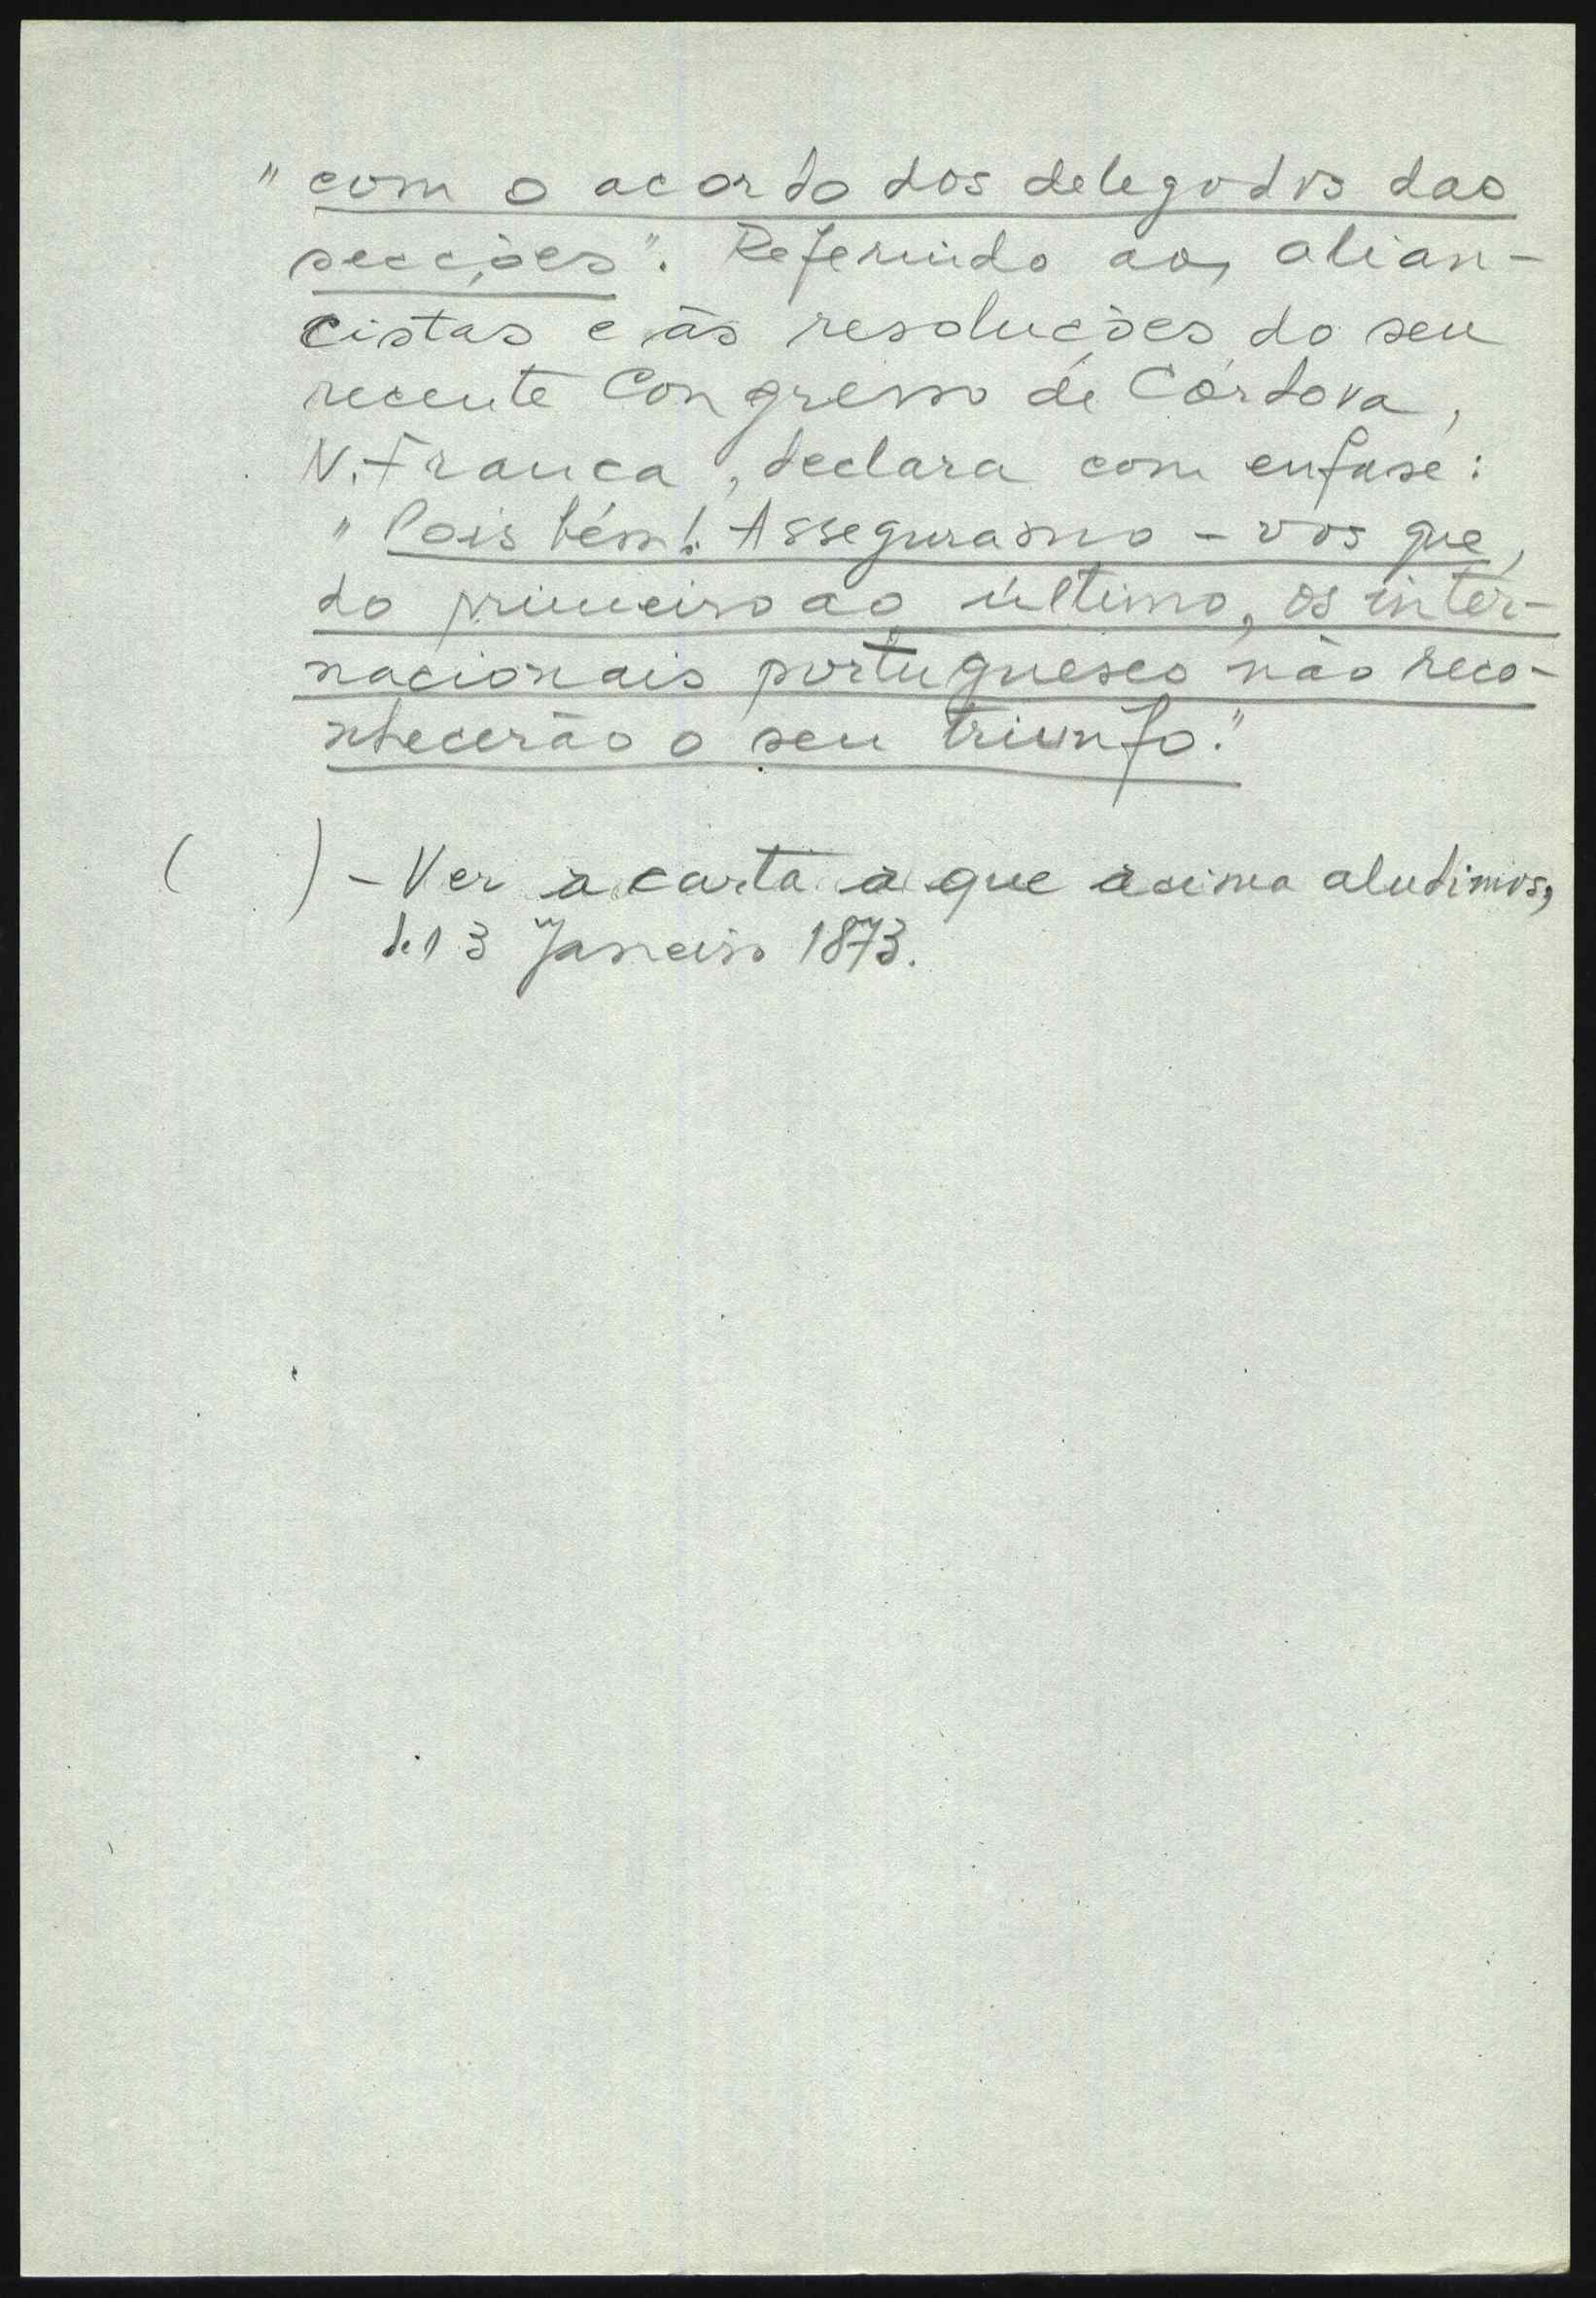 "com o acordo dos delegados das
secções". Referindo aos alian-
cistas e às resoluções do seu
recente Congresso de Córdova,
N. França, declara com enfase:
"Pois bém! Asseguramo-vos que,
do primeiro ao último, os inter-
nacionais portugueses não reco-
nhecerão o seu triunfo."
( ) - Ver a carta a que acima aludimos,
de 13 Janeiro 1873.